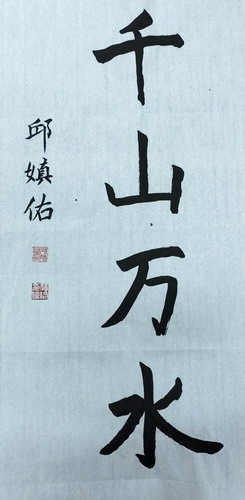 千山万水
邱嫃佑